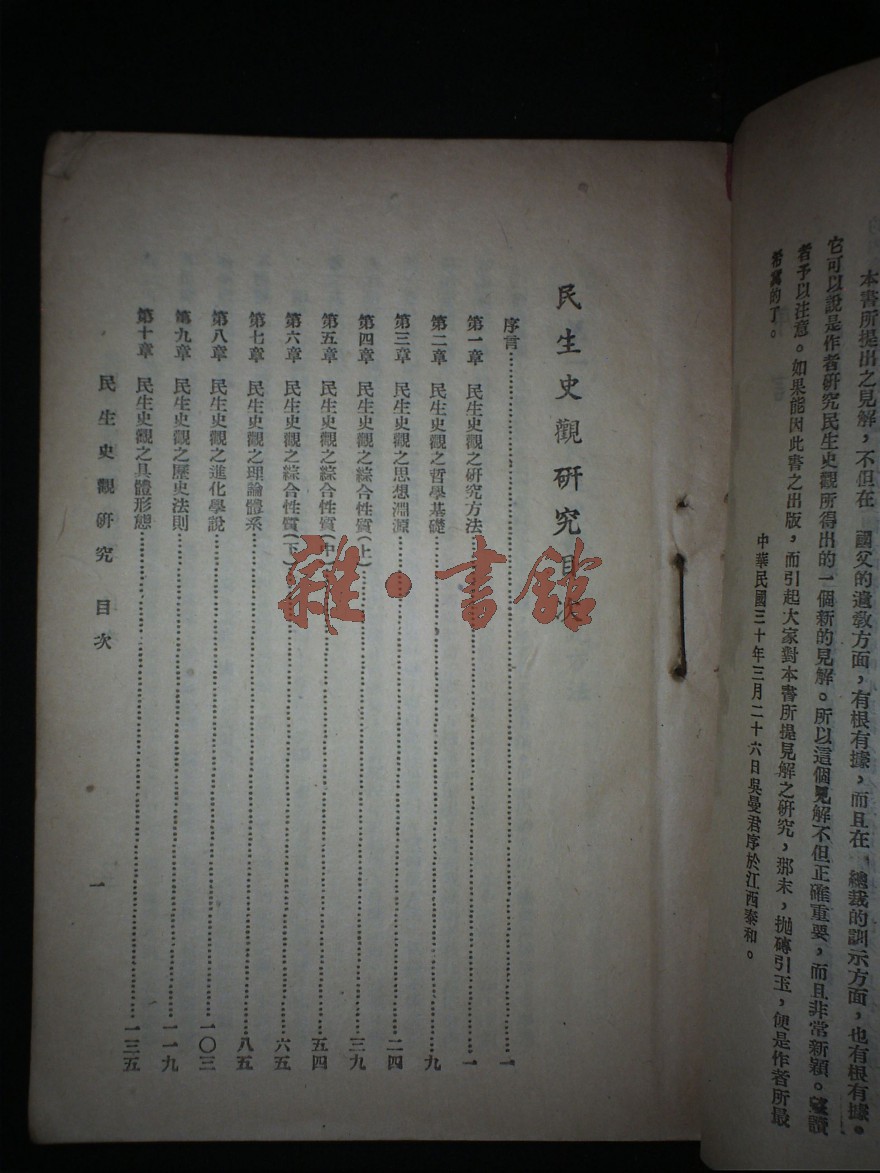 本書所提出之見解，不但在　國父的遺教方面，有根有據，而且在　總裁的訓示方面，也有根有據。
它可以說是作者研究民生史觀所得出的一個新的見解。所以這個見解不但正確重要，而且非常新穎。望讀
者予以注意。如果能因此書之出版，而引起大家對本書所提見解之研究，那末，拋磚引玉，便是作者所最
希冀的了。
中華民國三十年三月二十六日吳曼君序於江西泰和。
民生史觀研究目次
序言……一
第一章　民生史觀之研究方法……一
第二章　民生史觀之哲學基礎……九
第三章　民生史觀之思想淵源……二四
第四章　民生史觀之綜合性質(上)……三九
第五章　民生史觀之綜合性質(中)……五四
第六章　民生史觀之綜合性質(下)……六五
第七章　民生史觀之理論體系……八五
第八章　民生史觀之進化學說……一〇三
第九章　民生史觀之歷史法則……一一九
第十章　民生史觀之具體形態……一三五
民生史觀研究　目次
一
雜·書館